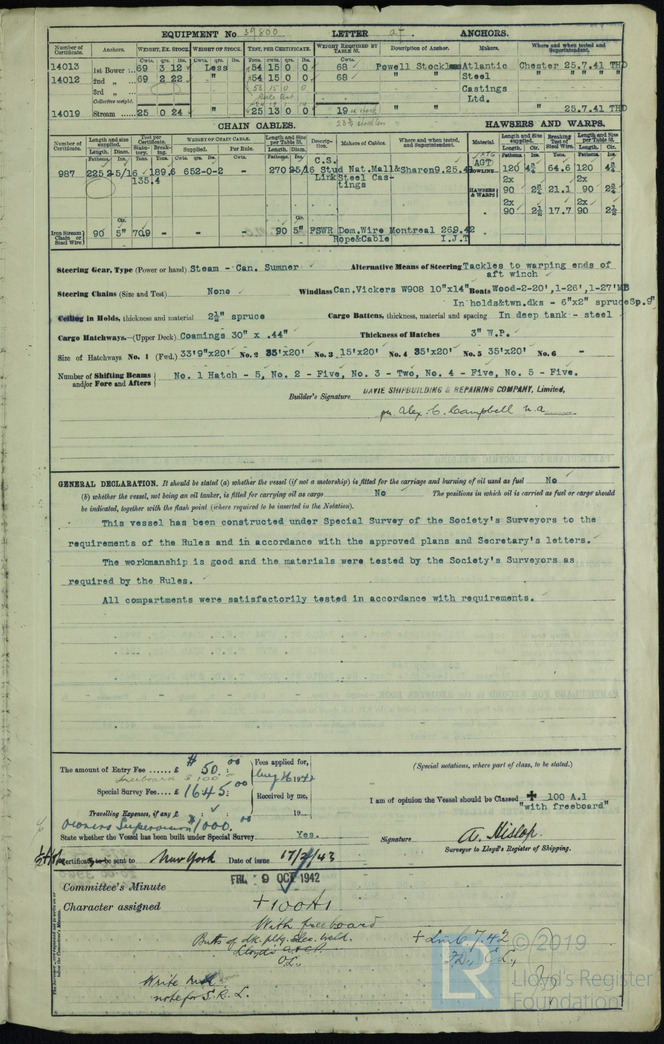 EQUIPMENT No 39800 LETTER at ANCHORS.
Number of Certificate. Anchors. WEIGHT, EX. STOCK. WEIGHT OF STOCK. TEST, PER CERTIFICATE. WEIGHT REQUIRED BY TABLE 31. Description of Anchor. Makers. Where and when tested and Superintendent.
Cwts. qrs. lbs. Cwts. qrs. lbs. Tons. cwts. qrs. lbs. Cwts.
14013 1st Bower 69 3 12 Less 54 15 0 0 68 Powell Stockless Atlantic Chester 25.7.41 THD
14012 2nd „ 69 2 22 " 54 15 0 0 68 " " Steel " " " "
3rd „ Castings
Collective weight. Ltd.
14019 Stream 25 0 24 " 25 13 0 0 19 " 25.7.41 THD
CHAIN CABLES. HAWSERS AND WARPS.
Number of Certificate. Length and size supplied. Test per Certificate. WEIGHT OF CHAIN CABLE. Length and Size per Table 31. Description. Makers of Cables. Where and when tested, and Superintendent. Material. Length and Size supplied. Breaking Test of Steel Wire. Length and Size per Table 31.
Length. Diam. Statutory. Breaking. Supplied. Per Rule. Length. Diam.
Fathoms. Ins. Tons. Tons. Cwts. qrs. lbs. Cwts. Fathoms. Ins. Fathoms. Cir. Tons. Fathoms. Cir.
C.S.
987 225 2-5/16 189.6 652-0-2 - 270 2-5/16 Stud Nat.Mall& Sharon 9.25.41 TOWLINE. 120 4¾ 64.6 120 4¾
135.4 Link Steel Castings
2x 2x
HAWSERS & WARPS 90 2¾ 21.1 90 2¾
2x 2x
" 90 2½ 17.7 90 2½
Iron Stream Chain or Steel Wire 90 5" 70.9 90 5" FSWR Dom.Wire Montreal 26.9.42
Rope&Cable I.J.T
Steering Gear, Type (Power or hand) Steam - Can. Sumner Alternative Means of Steering Tackles to warping ends of
aft winch
Steering Chains (Size and Test) None Windlass Can.Vickers W908 10"x14" Boats Wood-2-20',1-26',1-27'MB
In holds&twn.dks - 6"x2" spruceSp.9"
Ceiling in Holds, thickness and material 2½" spruce Cargo Battens, thickness, material and spacing In deep tank - steel
Cargo Hatchways.—(Upper Deck) Coamings 30" x .44" Thickness of Hatches 3" W.P.
Size of Hatchways No. 1 (Fwd.) 33'9"x20' No. 2 35'x20' No. 3 15'x20' No. 4 35'x20' No. 5 35'x20' No. 6 -
Number of Shifting Beams and/or Fore and Afters No. 1 Hatch - 5, No. 2 - Five, No. 3 - Two, No. 4 - Five, No. 5 - Five.
DAVIE SHIPBUILDING & REPAIRING COMPANY, Limited,
Builder's Signature
per Alex. C. Campbell
GENERAL DECLARATION. It should be stated (a) whether the vessel (if not a motorship) is fitted for the carriage and burning of oil used as fuel No
(b) whether the vessel, not being an oil tanker, is fitted for carrying oil as cargo No The positions in which oil is carried as fuel or cargo should
be indicated, together with the flash point (where required to be inserted in the Notation).
This vessel has been constructed under Special Survey of the Society's Surveyors to the
requirements of the Rules and in accordance with the approved plans and Secretary's letters.
The workmanship is good and the materials were tested by the Society's Surveyors as
required by the Rules.
All compartments were satisfactorily tested in accordance with requirements.
The amount of Entry Fee ...... £ $ 50.00 Fees applied for, (Special notations, where part of class, to be stated.)
freeboard $ 100 Aug 26 1942
Special Survey Fee ...... £ 1645.00 Received by me, I am of opinion the Vessel should be Classed + 100 A.1
"with freeboard"
Travelling Expenses, if any £ 19
Owners Supervision 1000.00
State whether the Vessel has been built under Special Survey Yes. Signature A. Hislop.
Surveyor to Lloyd's Register of Shipping.
Certificate to be sent to New York Date of issue 17/2/43
FRI. 9 OCT 1942
Committee's Minute
Character assigned +100A1
With freeboard
Butts of dk. pltg. Elec. Weld. + Lmb 7.42
Lloyd's A & CP. C.L.
C.L.
Write
note for S.R.L.
© 2019
LR Lloyd's Register
Foundation